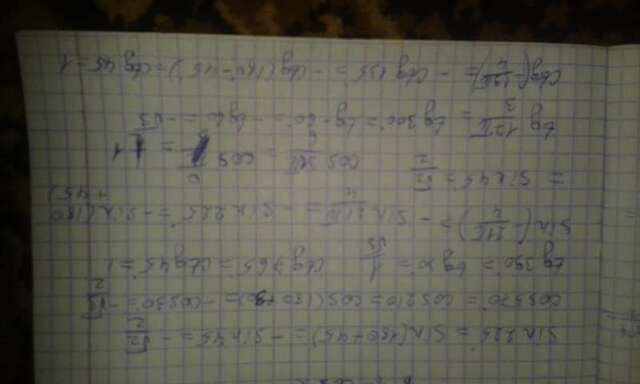 sin 225° = sin(180+45) = -sin 45 = -√2/2
cos 570° = cos 210 = cos(180+30) = -cos 30° = -√3/2
tg 390° = tg 30° = 1/√3 ctg 765° = ctg 45° = 1
sin(-21π/4) = -sin 21π/4 = -sin 225° = -sin(180+45)
= sin 45° = √2/2 cos = cos 0 = 1
tg 17π/3 = tg 300° = tg -60° = -tg 60 = -√3
ctg(-19π/4) = -ctg 135° = -ctg(180°-45°) = ctg 45 = 1